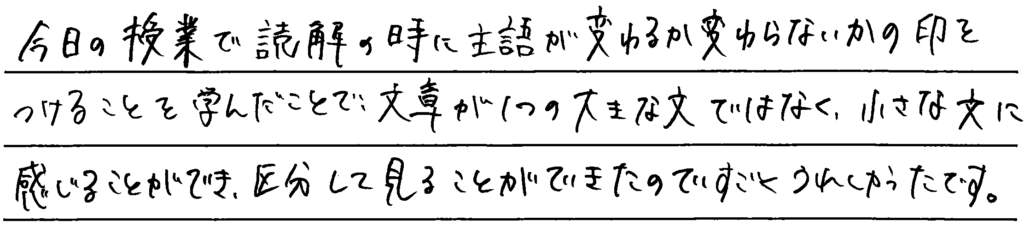 今日の授業で読解の時に主語が変わるか変わらないかの印を
つけることを学んだことで、文章が1つの大きな文ではなく、小さな文に
感じることができ、区分して見ることができたのですごくうれしかったです。